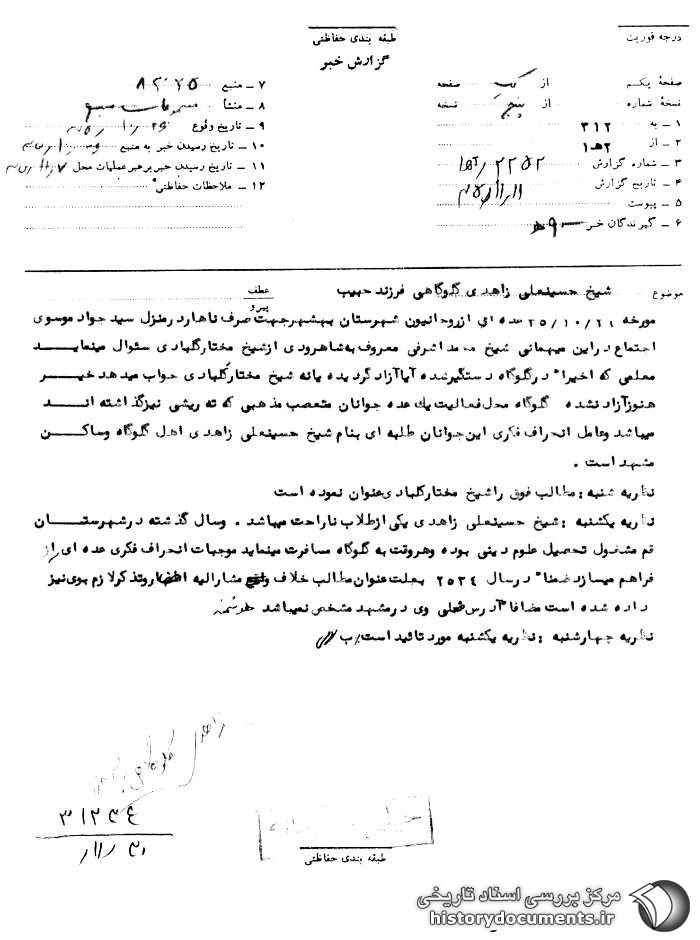 درجه فوریت
طبقه بندی حفاظتی
گزارش خبر
صفحهٔ یکم از یک صفحه
نسخهٔ شماره از پنج نسخه
۱ ـ به ۳۱۲
۲ ـ از ۲هـ۱
۳ ـ شماره گزارش ۲۲۵۲
۴ ـ تاریخ گزارش
۵ ـ پیوست
۶ ـ گیرندگان خبر
۷ ـ منبع
۸ ـ منشأ
۹ ـ تاریخ وقوع
۱۰ ـ تاریخ رسیدن خبر به منبع
۱۱ ـ تاریخ رسیدن خبر برهبر عملیات محل
۱۲ ـ ملاحظات حفاظتی
موضوع شیخ حسینعلی زاهدی گلوگاهی فرزند حبیب
عطف
پیرو
مورخه ۲۵/۱۰/۲۱ عده ای ازروحانیون شهرستان بهشهرجهت صرف ناهاردرمنزل سید جواد موسوی
اجتماع دراین میهمانی شیخ محمد اشرفی معروف به شاهرودی ازشیخ مختارگلبادی سئوال مینماید
معلمی که اخیرا" درگلوگاه دستگیرشده آیاآزاد گردیده یانه شیخ مختارگلبادی جواب میدهد خیر
هنوزآزاد نشده گلوگاه محل فعالیت یك عده جوانان متعصب مذهبی که ته ریشی نیزگذاشته اند
میباشد وعامل انحراف فکری این جوانان طلبه ای بنام شیخ حسینعلی زاهدی اهل گلوگاه وساکن
مشهد است .
نظریه شنبه : مطالب فوق راشیخ مختارگلبادی عنوان نموده است
نظریه یکشنبه : شیخ حسینعلی زاهدی یکی ازطلاب ناراحت میباشد . وسال گذشته درشهرستان
قم مشغول تحصیل علوم دینی بوده وهروقت به گلوگاه مسافرت مینماید موجبات انحراف فکری عده ای را
فراهم میسازد ضمنا" درسال ۲۵۳۴ بعلت عنوان مطالب خلاف واقع مشارالیه احضاروتذکرلازم بوی نیز
داده شده است مضافا" آدرس فعلی وی درمشهد مشخص نمیباشد
نظریه چهارشنبه : نظریه یکشنبه مورد تائید است
زاهدی
۳۱۲۳۴
طبقه بندی حفاظتی
مرکز بررسی اسناد تاریخی
historydocuments.ir